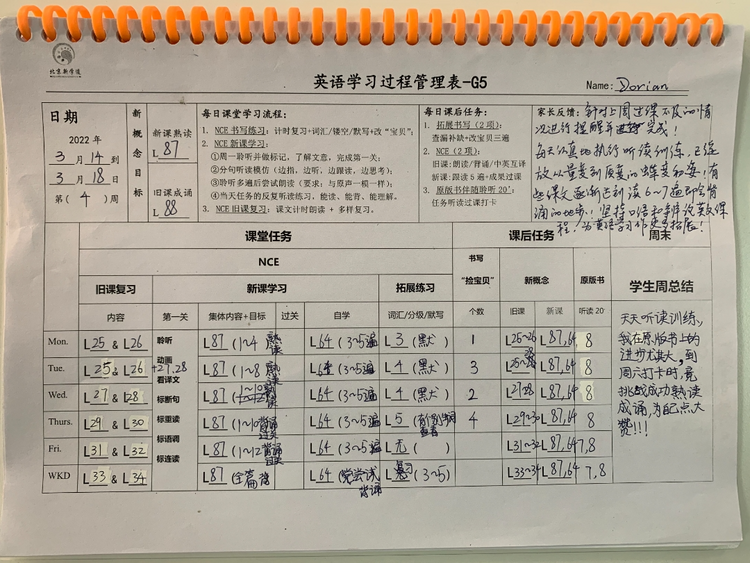 北京新学道
英语学习过程管理表-G5
Name: Dorian
日期
2022 年
3 月 14 到
3 月 18 日
第( 4 )周
新概念目标
新课熟读
L 87
旧课成诵
L 88
每日课堂学习流程:
1. NCE 书写练习:计时复习+词汇/镂空/默写+改“宝贝”;
2. NCE 新课学习:
①周一聆听并做标记,了解文意,完成第一关;
②分句听读模仿(边指、边听、边跟读、边思考);
③聆听多遍后尝试朗读(要求:与原声一模一样);
④当天任务的反复听读练习,能读、能背、能理解。
3. NCE 旧课复习:课文计时朗读 + 多样复习。
每日课后任务:
1. 拓展书写(2 项):
查漏补缺+改宝贝三遍
2. NCE(2 项):
旧课:朗读/背诵/中英互译
新课:跟读 5 遍+成果过课
3. 原版书书伴随聆听 20':
任务听读过课打卡
家长反馈:针对上周过课不及的情
况进行提醒并完成!
每天认真地执行听读训练,已绽
放从量变到质变的蜕变和姿!有
些课文逐渐达到读6~7遍即会背
诵的地步!坚持口语和
课堂任务
课后任务
周末
NCE
书写
“捡宝贝”
新概念
原版书
学生周总结
旧课复习
新课学习
拓展练习
内容
第一关
集体内容+目标
过关
自学
词汇/分级/默写
个数
旧课
新课
听读 20'
Mon.
L25 & L26
聆听
L87 (1~4 熟读
L64 (3~5遍
L3 (默)
1
L25~26
L87,64
8
Tue.
L25 & L26 +27,28
动画
看译文
L87 (1~8 熟读
L64 (3~5遍
L4 (默)
3
L25~28
L87,64
8
Wed.
L27 & L28
标断句
L87
L64 (3~5遍
L4 (默)
2
L27~28
L87,64
8
Thurs.
L29 & L30
标重读
L87 (1~10背诵过关
L64 (3~5遍
L5
4
L29~30
L87,64
8
Fri.
L31 & L32
标语调
L87 (1~12背诵过关
L64 (3~5遍
L无 ( )
L31~32
L87,64
7,8
WKD
L33 & L34
标连读
L87 (全篇背
L64 (尝试背诵
L复习 (3~5)
L33~34
L87,64
7,8
天天听读训练,
我在原版书上的
进步尤其大,到
周六打卡时,竟
挑战成功熟读
成诵,为自己点大
赞!!!